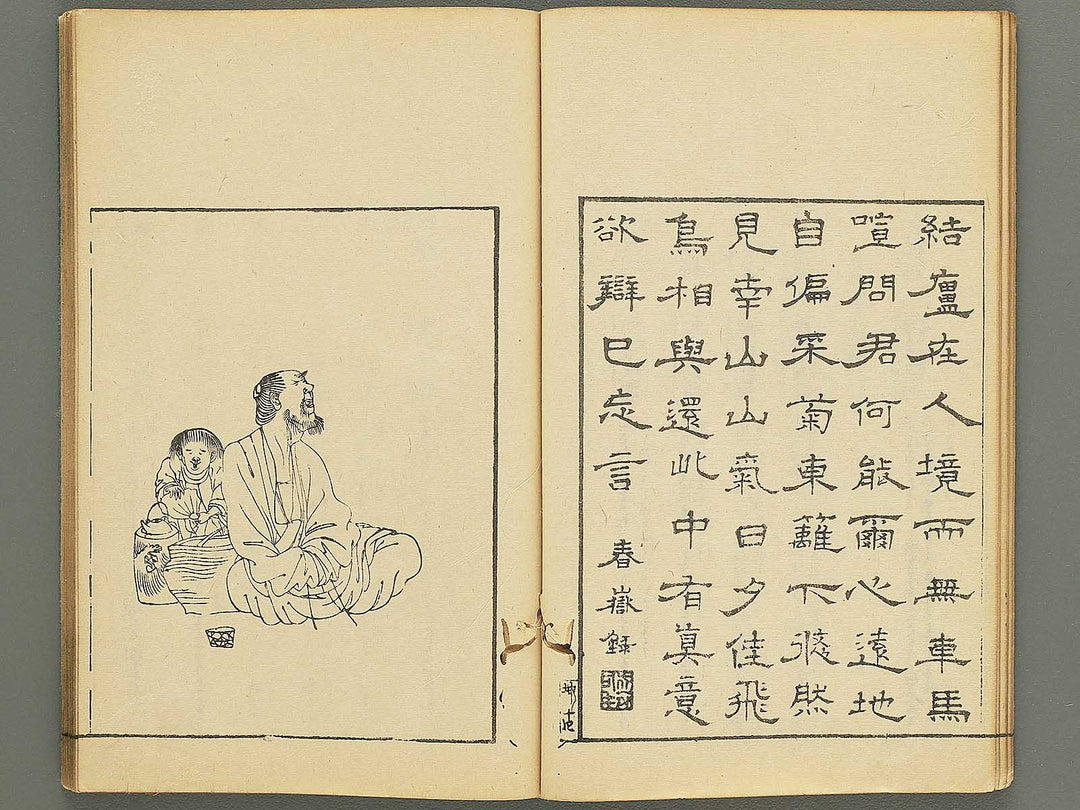 結廬在人境而無車馬
喧問君何能爾心遠地
自偏采菊東籬下悠然
見南山山氣日夕佳飛
鳥相與還此中有真意
欲辯已忘言 春嶽録